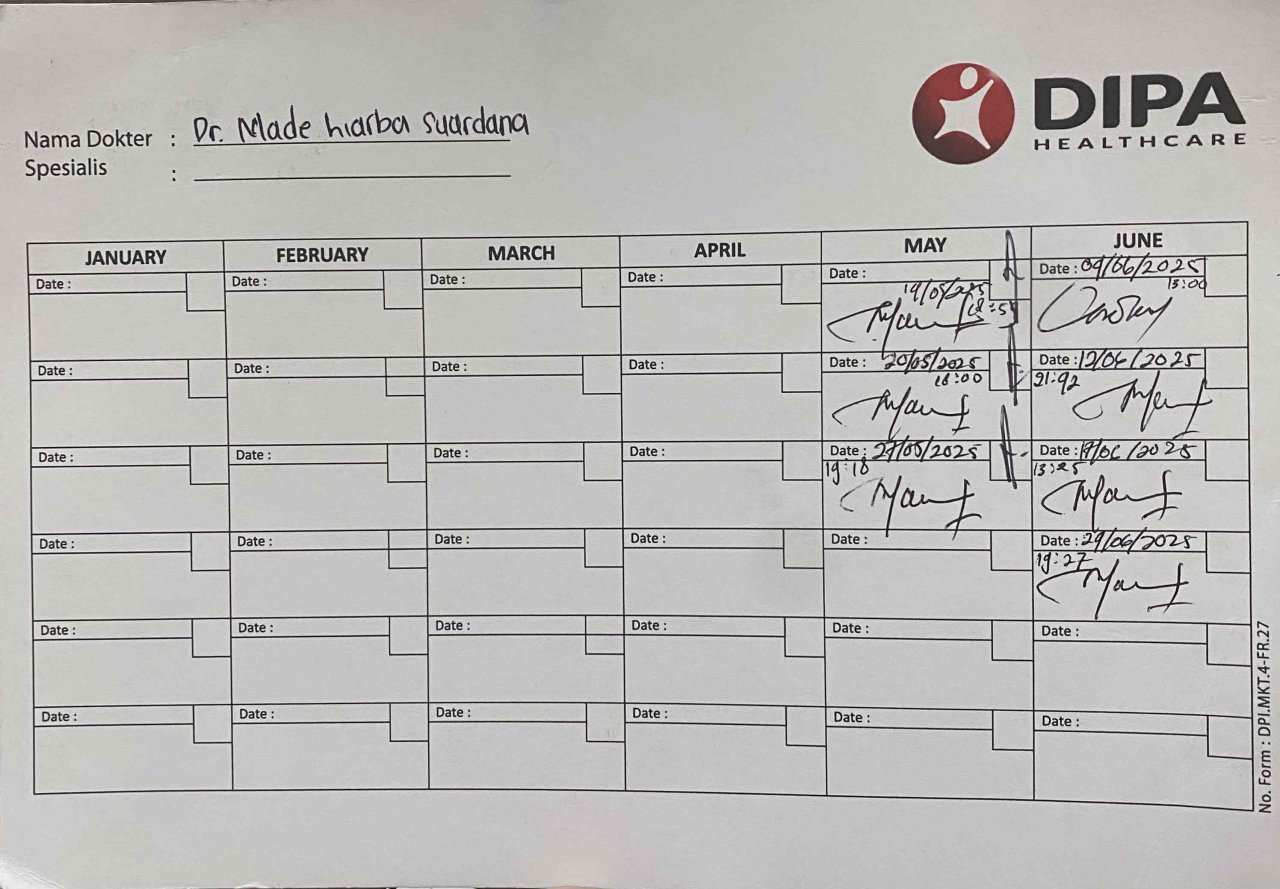 DIPA
HEALTHCARE
Nama Dokter : Dr. Made hiarba Suardana
Spesialis :
JANUARY FEBRUARY MARCH APRIL MAY JUNE
Date : Date : Date : Date : Date : 19/05/2025 Date : 04/06/2025
18:5 13:00
Date : Date : Date : Date : Date : 20/05/2025 Date : 12/06/2025
18:00 21:42
Date : Date : Date : Date : Date : 27/05/2025 Date : /06/2025
19:18 13:25
Date : Date : Date : Date : Date : Date : 29/06/2025
19:27
Date : Date : Date : Date : Date : Date :
Date : Date : Date : Date : Date : Date :
No. Form : DPI.MKT.4-FR.27